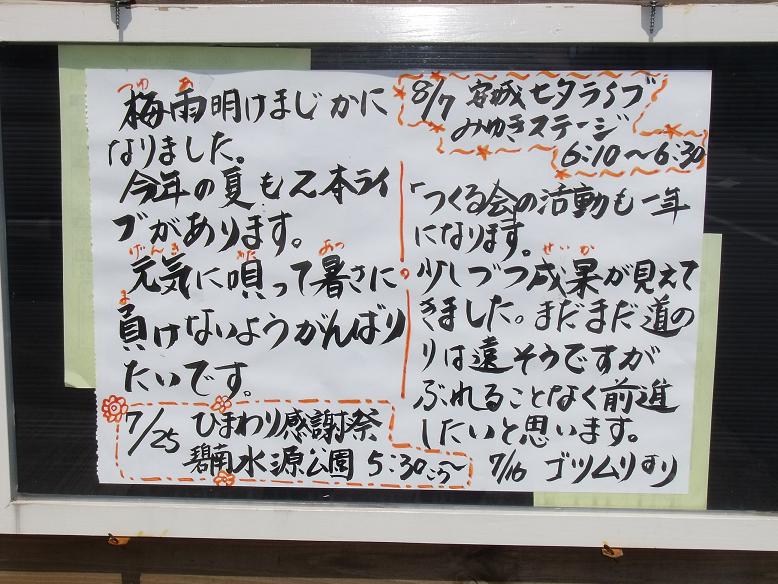 梅雨明けまじかに
なりました。
今年の夏も2本ライ
ブがあります。
元気に唄って暑さに
負けないようがんばり
たいです。
7/25 ひまわり感謝祭
碧南水源公園 5:30ごろ〜
8/7 安城七夕ライブ
みゆきステージ
6:10〜6:30
「つくる会の活動も一年
になります。
少しづつ成果が見えて
きました。まだまだ道の
りは遠そうですが
ぶれることなく前進
したいと思います。
7/16 ゴツムリより